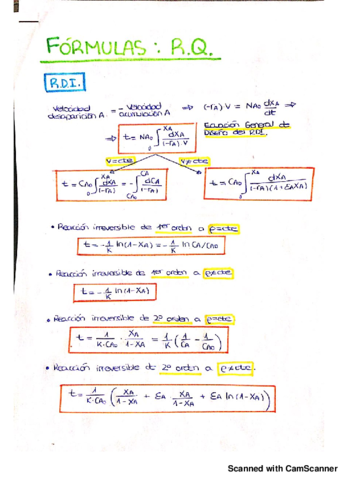 FÓRMULAS: R.Q.
R.D.I.
Velocidad desaparición A = - Velocidad acumulación A ⇒ (-rA) V = NA0 dXA/dt ⇒
⇒ t = NA0 ∫₀^XA dXA/((-rA) V)
Ecuación General de Diseño del RDI.
V=cte
V≠cte
t = CA0 ∫₀^XA dXA/(-rA) = - ∫_CA0^CA dCA/(-rA)
t = CA0 ∫₀^XA dXA/((-rA)(1+εAXA))
• Reacción irreversible de 1er orden a ρ=cte
t = -1/K ln(1-XA) = -1/K ln CA/CA0
• Reacción irreversible de 1er orden a ρ≠cte
t = -1/K ln(1-XA)
• Reacción irreversible de 2º orden a ρ=cte
t = 1/(K·CA0) · XA/(1-XA) = 1/K (1/CA - 1/CA0)
• Reacción irreversible de 2º orden a ρ≠cte.
t = 1/(K·CA0) (XA/(1-XA) + εA XA/(1-XA) + εA ln(1-XA))
Scanned with CamScanner